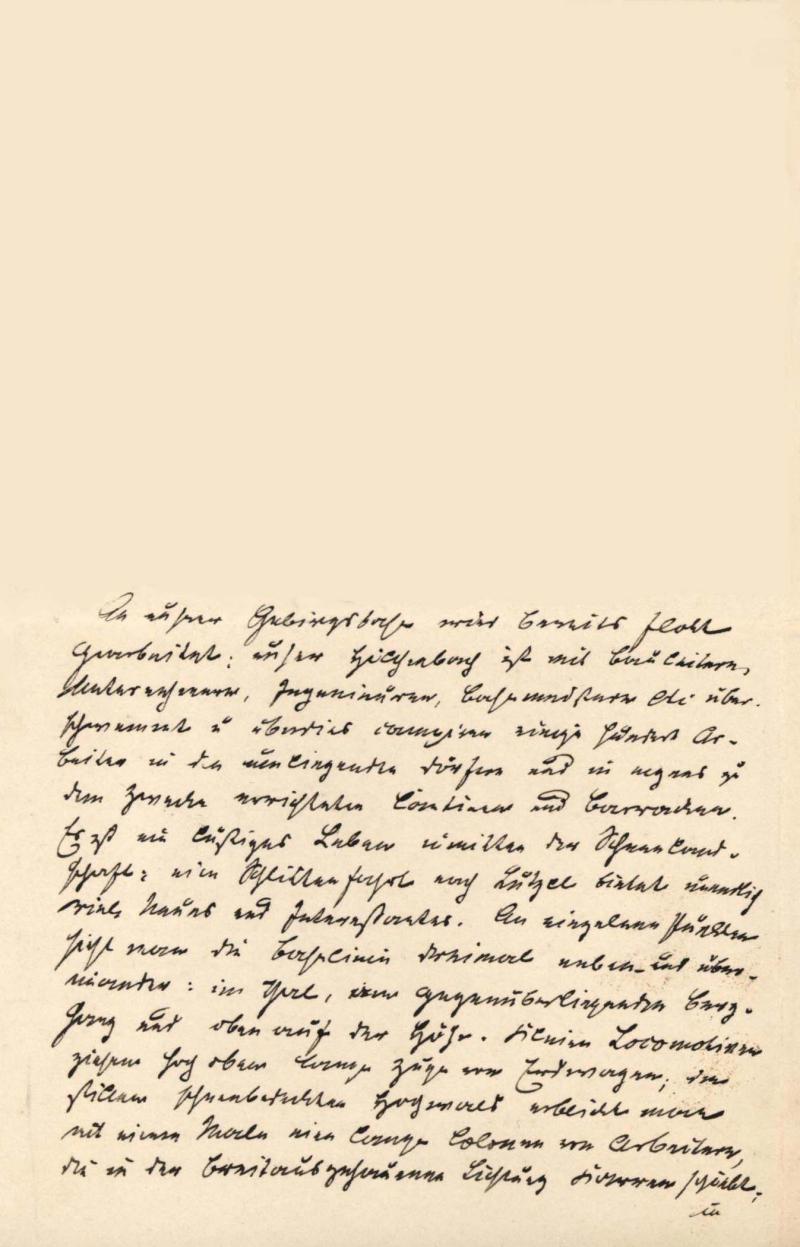 An unserer Gebirgsbahn wird bereits flott
gearbeitet; unser Hilchenbach ist mit Bauleitern,
Unternehmern, Ingenieuren, Bahnmeistern etc über-
schwemmt u überdies campiren einige hundert Ar-
beiter in den umliegenden Dörfern und in eigens zu
dem Zwecke errichteten Cantinen und Barracken.
Es ist ein lustiges Leben inmitten der Schneeland-
schaft; eine Schlittenfahrt nach Lützel bietet unendlich
viel Neues und Interessantes. An einzelnen Punkten
sieht man die Bahnlinie dreimal neben- und über-
einander: im Thal, am gegenüberliegenden Berg-
hang und oben auf der Höhe. Kleine Locomotiven
ziehen hoch oben lange Züge von Erdwagen; im
stillen schneebedeckten Hochwald erblickt man
mit einem Male eine lange Colonne von Arbeitern,
die in der breitausgehauenen Lichtung Karren schiebt;
in